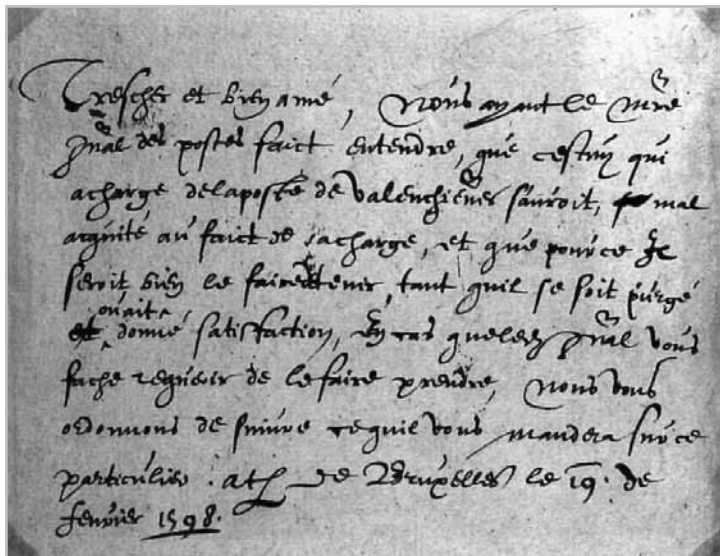 Trescher et bien amé, Nous ayant le mre
gnãl des postes faict entendre, que cestuy qui
a charge de la poste de Valenchienes sauroit mal
acquité au faict de sa charge, et que pour ce Il
seroit bien le faire tenir, tant quil se soit purgé
et ouait donné satisfaction, En cas que led gnãl vous
fache requerir de le faire prendre, Nous vous
ordonnons de suivre ce quil vous mandera sur ce
particulier. de Bruxelles le 19. de
fevrier 1598.